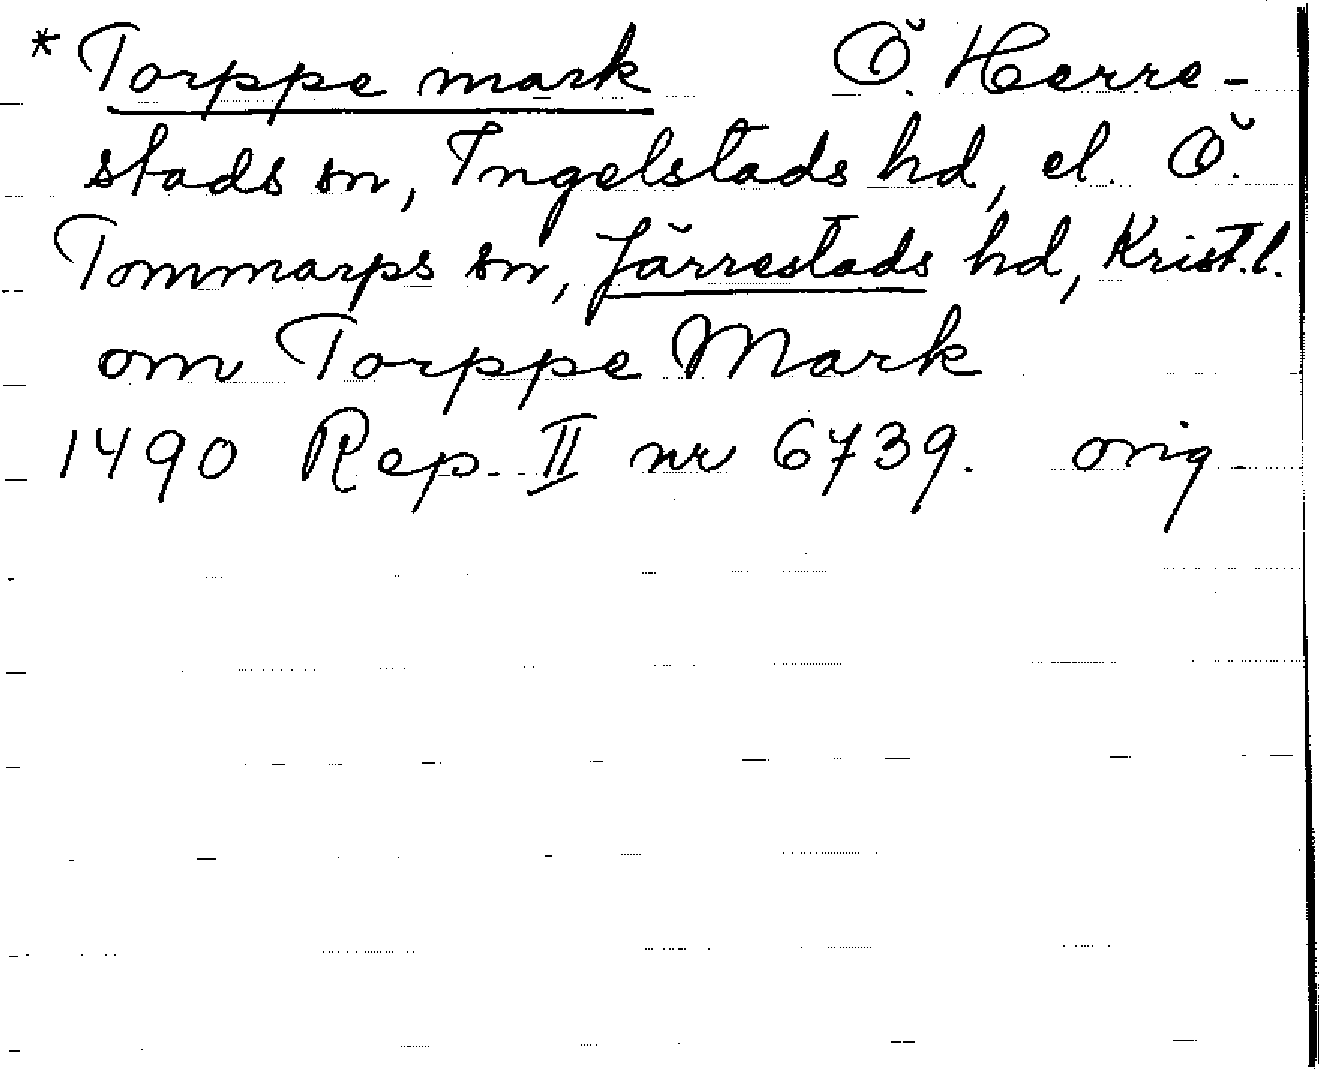 * Torppe mark Ö. Herre-
stads sn, Ingelstads hd, el. Ö.
Tommarps sn, Järrestads hd, Krist.l.
om Torppe Mark
1490 Rep. II nr 6739. orig